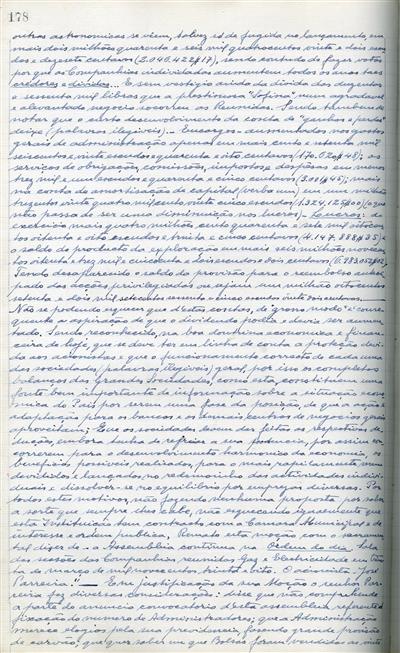 178
outras astronomicas se viem, talvez só de fugida no lançamento, em
mais dois milhões quarenta e seis mil quatrocentos vinte e dois escu-
dos e dezasete centavos (2.046.422$17), sendo contudo de fazer votos
por que as Companhias individadas aumentem todos os anos taes
creditores e dividas. E sem vestigio ainda da divida das duzentas
e sessenta mil libras que a prestimosa "Sofina" num agradavel
e alevantado negocio socorreu as Reunidas. Sendo tambem de
notar que o curto desenvolvimento da conta de "ganhos e perdas"
deixe (palavras ilegiveis). Encargos - aumentados nos gastos
gerais de administração apenas em mais cento e setenta mil
seiscentos e vinte escudos e quarenta e oito centavos (170.620$48); os
serviços de obrigação, comissões, impostos e despesas em menos
tres mil e um escudos e quarenta e cinco centavos (3.001$45); mais
na conta de amortisação de capital (verba um) em um milhão
trezentos vinte quatro mil cento vinte cinco escudos (1.324.125$00) (o que
não passa de ser uma diminuição nos lucros). Lucros: do
exercicio mais quatro milhões cento quarenta e sete mil oitocen-
tos oitenta e oito escudos e trinta e cinco centavos (4.147.888$35) e
o saldo do producto da exploração em mais seis milhões novecen-
tos oitenta e tres mil e cincoenta e dois escudos e dois centavos (6.983.052$02).
Tendo desaparecido o saldo da provisão para o reembolso anteci-
pado das acções privilegiadas ou sejam um milhão oitocentos
setenta e dois mil setecentos sessenta e cinco escudos vinte dois centavos.
Não se podendo esquecer que destas contas, de grosso modo e conse-
quente a aspiração de que o dividendo podia e devia ser aumen-
tado. Sendo reconhecido, na boa doutrina economica e finan-
ceira de hoje, que se deve ter em linha de conta a proteção devi-
da aos accionistas e que o funcionamento correcto de cada uma
das sociedades (palavras ilegiveis) geral, por isso os completos
balanços das grandes Sociedades, como esta, constituem uma
fonte bem importante de informação sobre a situação econo-
mica do Paiz por serem um face da posição, de que a ação e
adaptação para os bancos e os demais centros de negocios gerais
aproveitam; E que as sociedades devem ser feitas as respectivas de-
ducções, embora tenha de refreiar a sua potencia, por assim con-
correrem para o desenvolvimento harmonico da economia, os
beneficios possiveis realizados, para o mais rapidamente rem
devididos e lançados no redemoinho das actividades indivi-
duais e dissolver-se no equilibrio por empregos diversos. Por
todos estes motivos, não fazendo nenhuma proposta por saber
a sorte que sempre lhes cabe, não esquecendo igualmente que
esta Instituição tem contracto com a Camara Municipal e de
interesse e ordem publica, Remato esta moção com o sacramen-
tal dizer de - a Assembleia continua na Ordem do dia. Sala
das sessões das Companhias Reunidas Gaz e Electricidade em trin-
ta de março de mil novecentos trinta e oito. O accionista José
Parreira". Em justificação da sua Moção o senhor Par-
reira fez diversas considerações: disse que não comprehende
a parte do anuncio convocatorio d'esta assembleia referente á
fixação do numero de Administradores; que a Administração
merece elogios pela sua previdencia, fazendo grande provisão
de carvão; que quer saber em que Bolsas foram vendidas as vinte